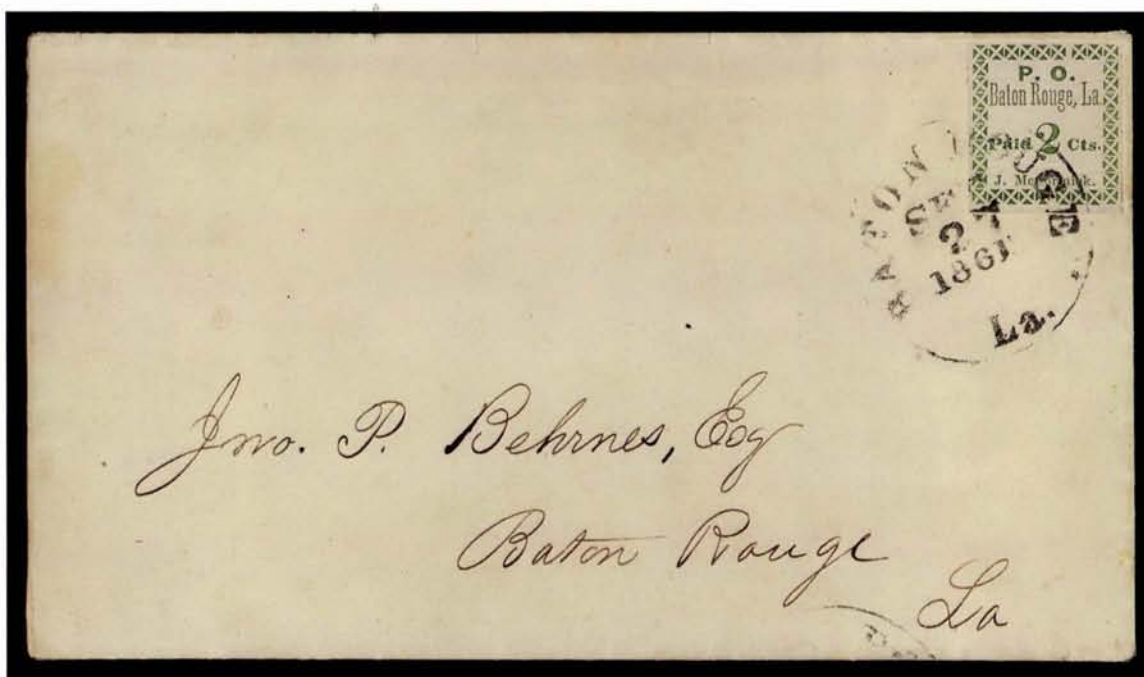 P. O.
Baton Rouge, La.
Paid 2 Cts.
J. McCormick.
BATON ROUGE
SEP
27
1861
La.
Jno. P. Behrnes, Esq
Baton Rouge
La